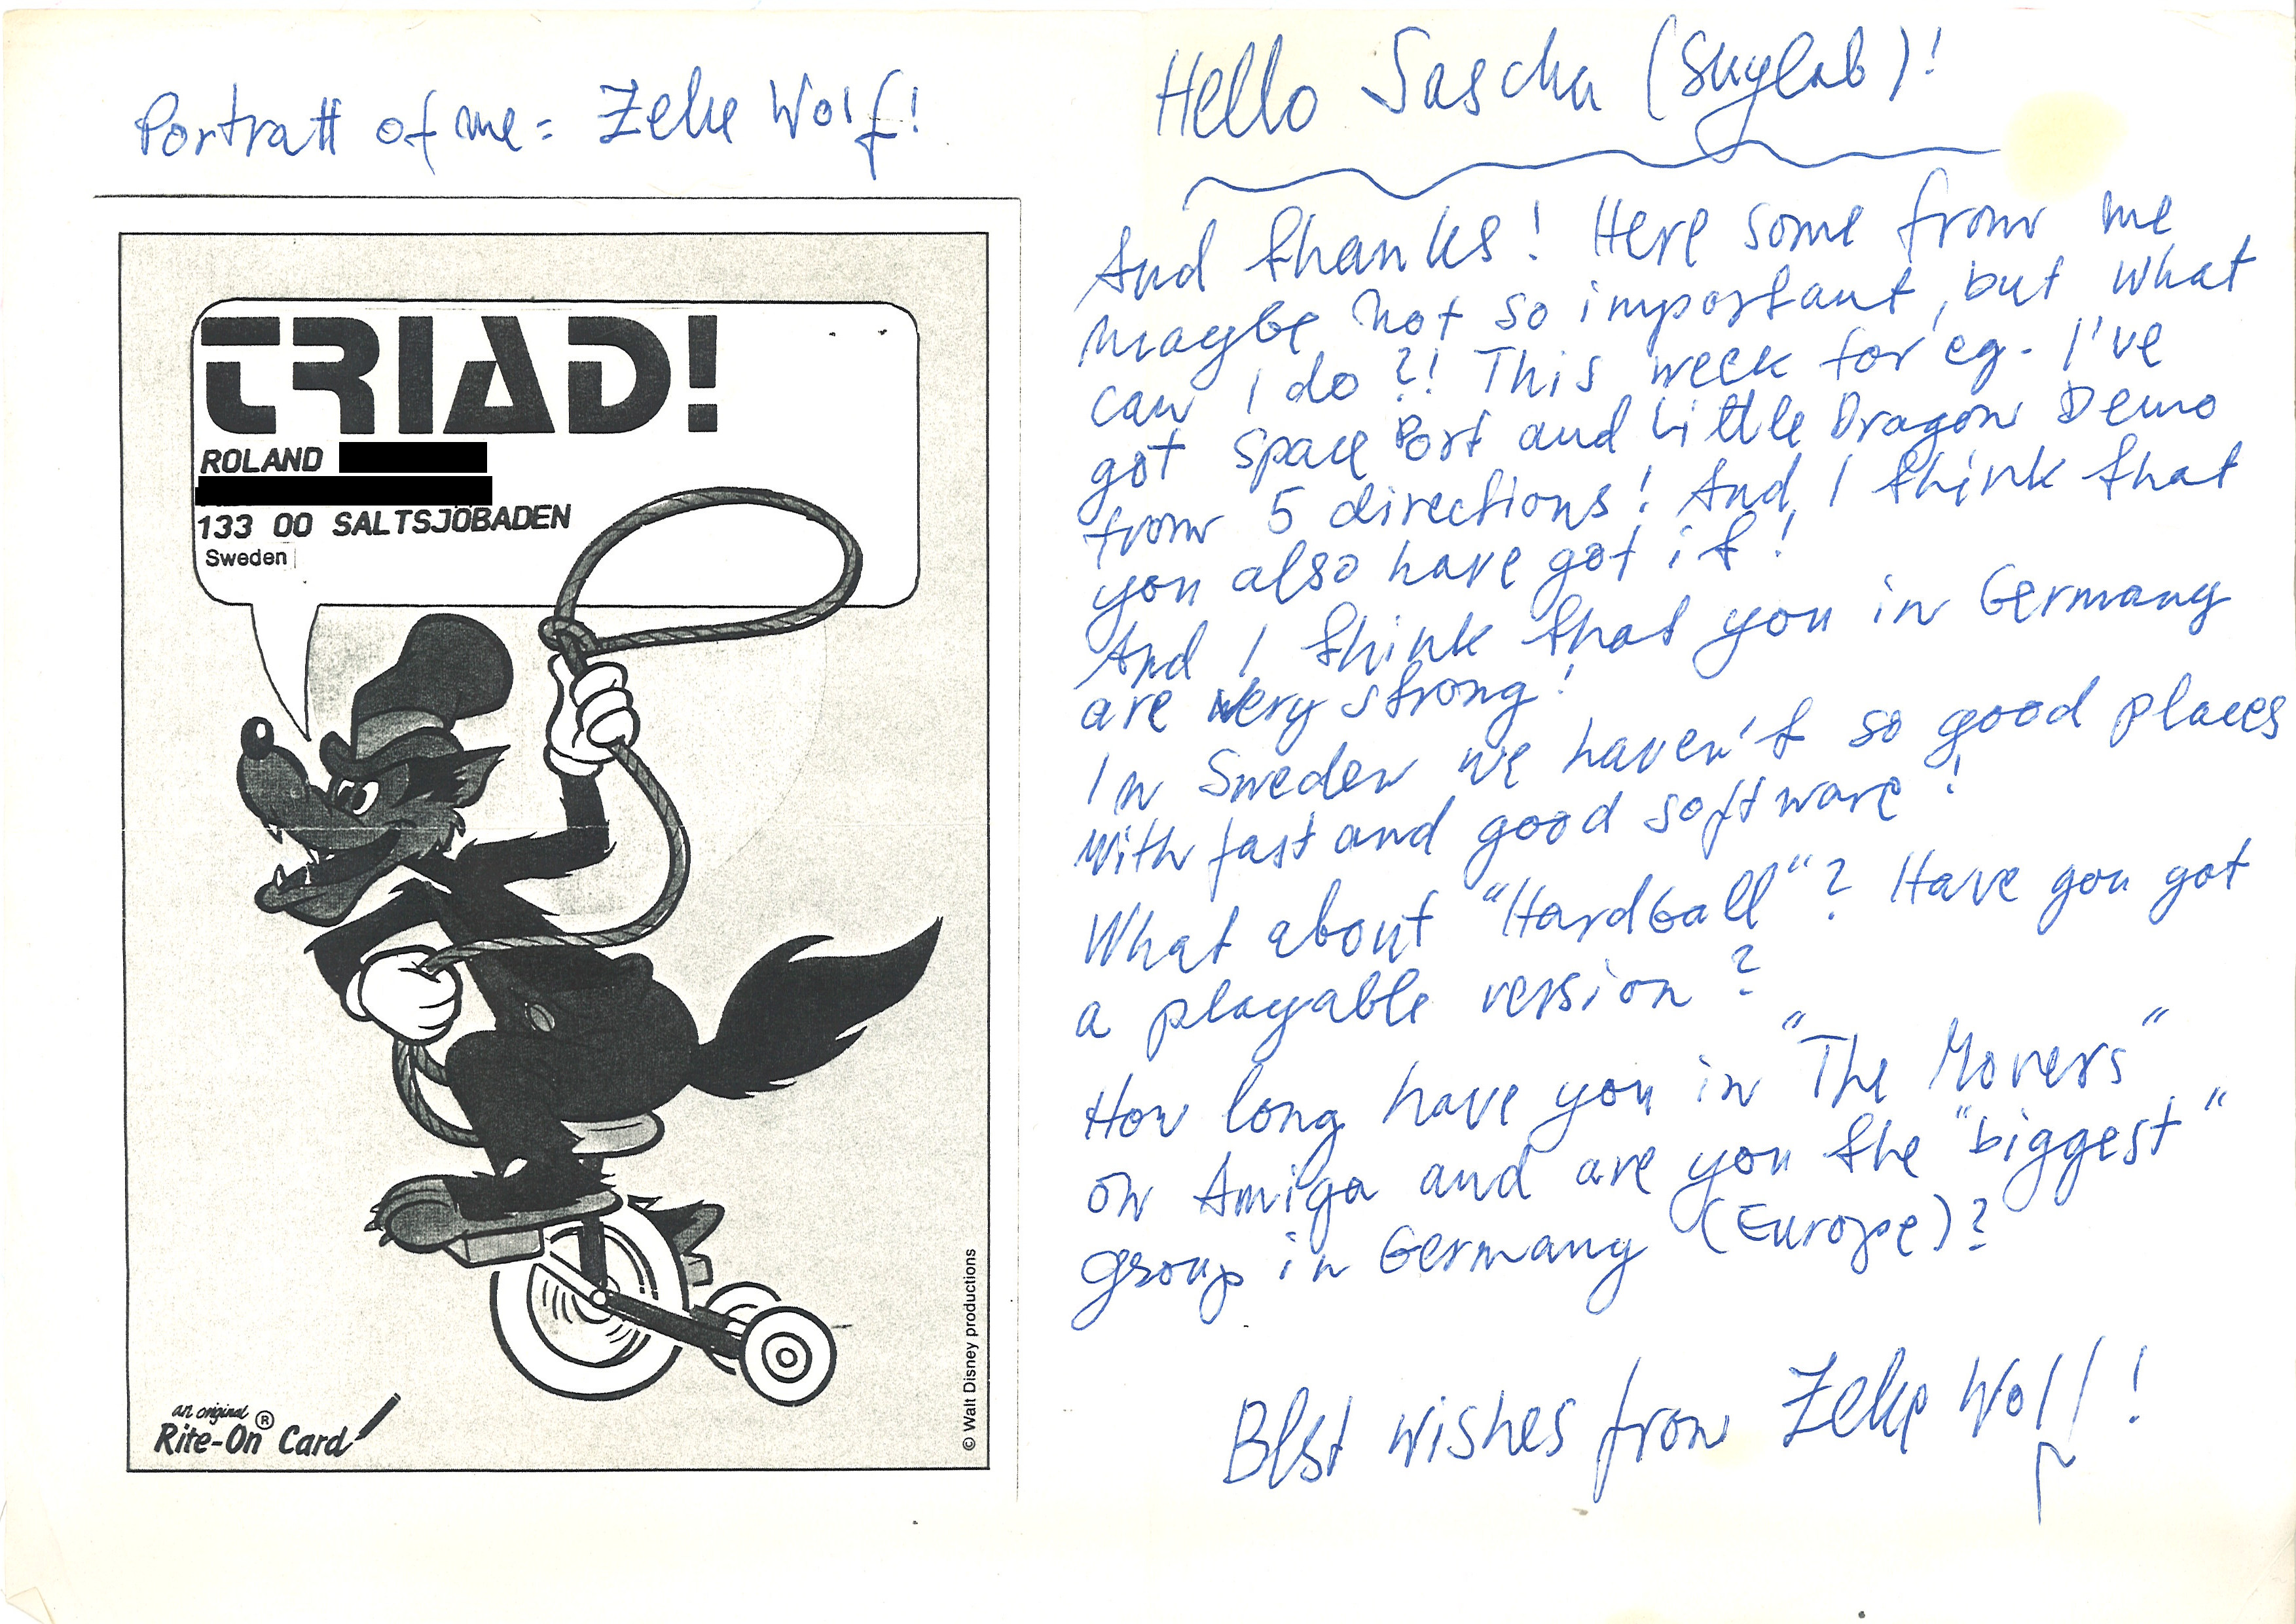 Portratt of me = Zeke Wolf!
TRIAD!
ROLAND
133 00 SALTSJÖBADEN
Sweden
an original
Rite-On® Card
© Walt Disney productions
Hello Sascha (Skylab)!
And thanks! Here some from me
maybe not so important, but what
can I do?! This week for eg. I've
got Space Port and Little Dragon Demo
from 5 directions! And I think that
you also have got it!
And I think that you in Germany
are very strong!
In Sweden we haven't so good places
with fast and good software!
What about "Hardball"? Have you got
a playable version?
How long have you in "The Movers"
on Amiga and are you the "biggest"
group in Germany (Europe)?
Best wishes from Zeke Wolf!